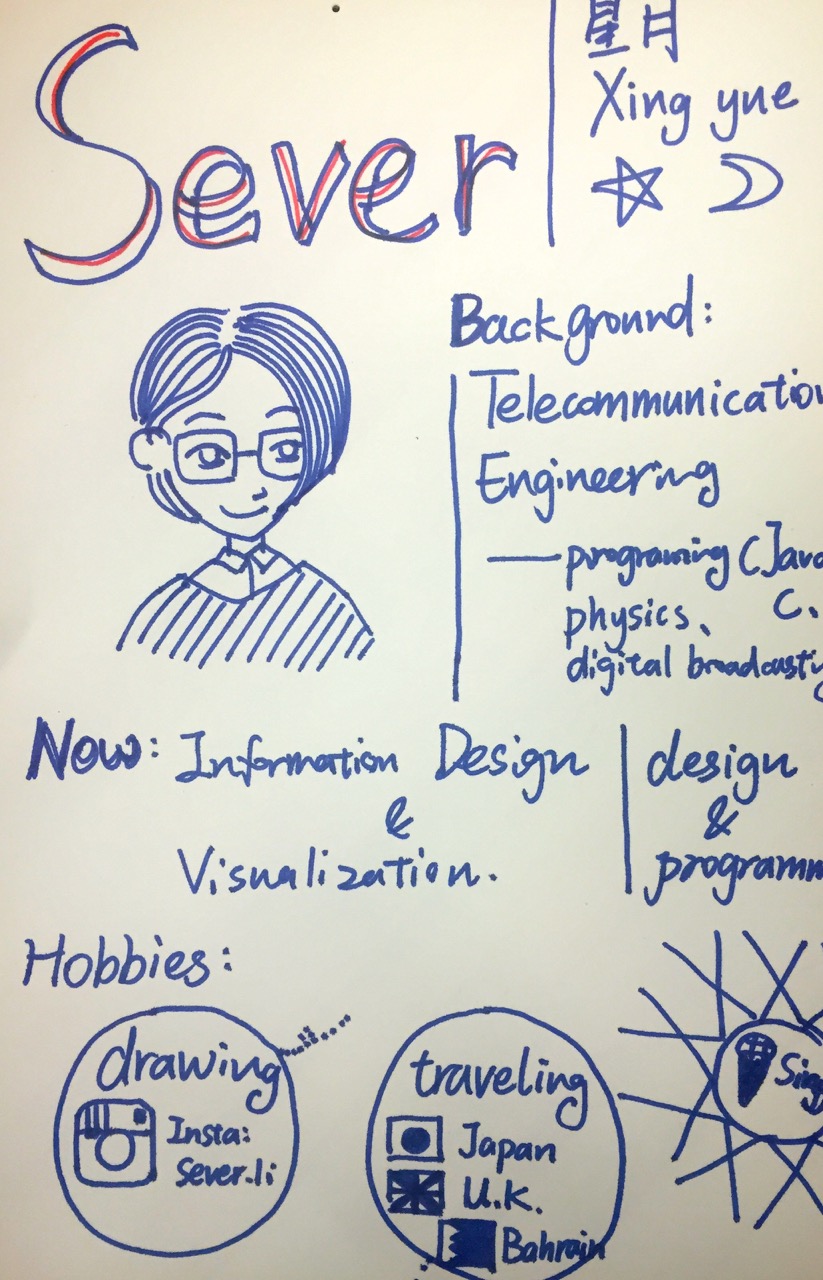 Sever
星月
Xing yue
Background:
Telecommunication
Engineering
— programing (Java
physics、 C.
digital broadcasting
Now: Information Design
&
Visualization.
design
&
programm
Hobbies:
drawing
Insta:
Sever.li
traveling
Japan
U.K.
Bahrain
Sing